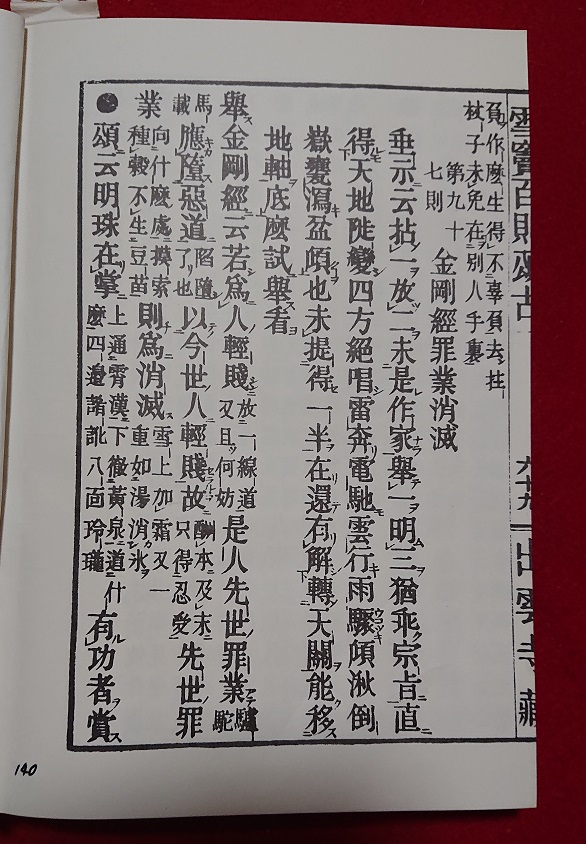 雪竇百則頌古 六十九 出雲寺藏
負作麼生得不辜負去拄
杖子未免在別人手裏
第九十七則 金剛經罪業消滅
垂示云拈一放二未是作家舉一明三猶乖宗旨直
得天地陡變四方絕唱雷奔電馳雲行雨驟傾湫倒
嶽甕瀉盆傾也未提得一半在還有解轉天關能移
地軸底麼試舉看
舉金剛經云若爲人輕賤 放一線道又且何妨 是人先世罪業 驢駝
馬載 應墮惡道 陷墮了也 以今世人輕賤故 酬本及末只得忍受 先世罪
業 向什麼處摸索種穀不生豆苗 則爲消滅 雪上加霜又一重如湯消氷
●頌云明珠在掌 上通霄漢下徹黃泉道什麼四邊誵訛八面玲瓏 有功者賞
140